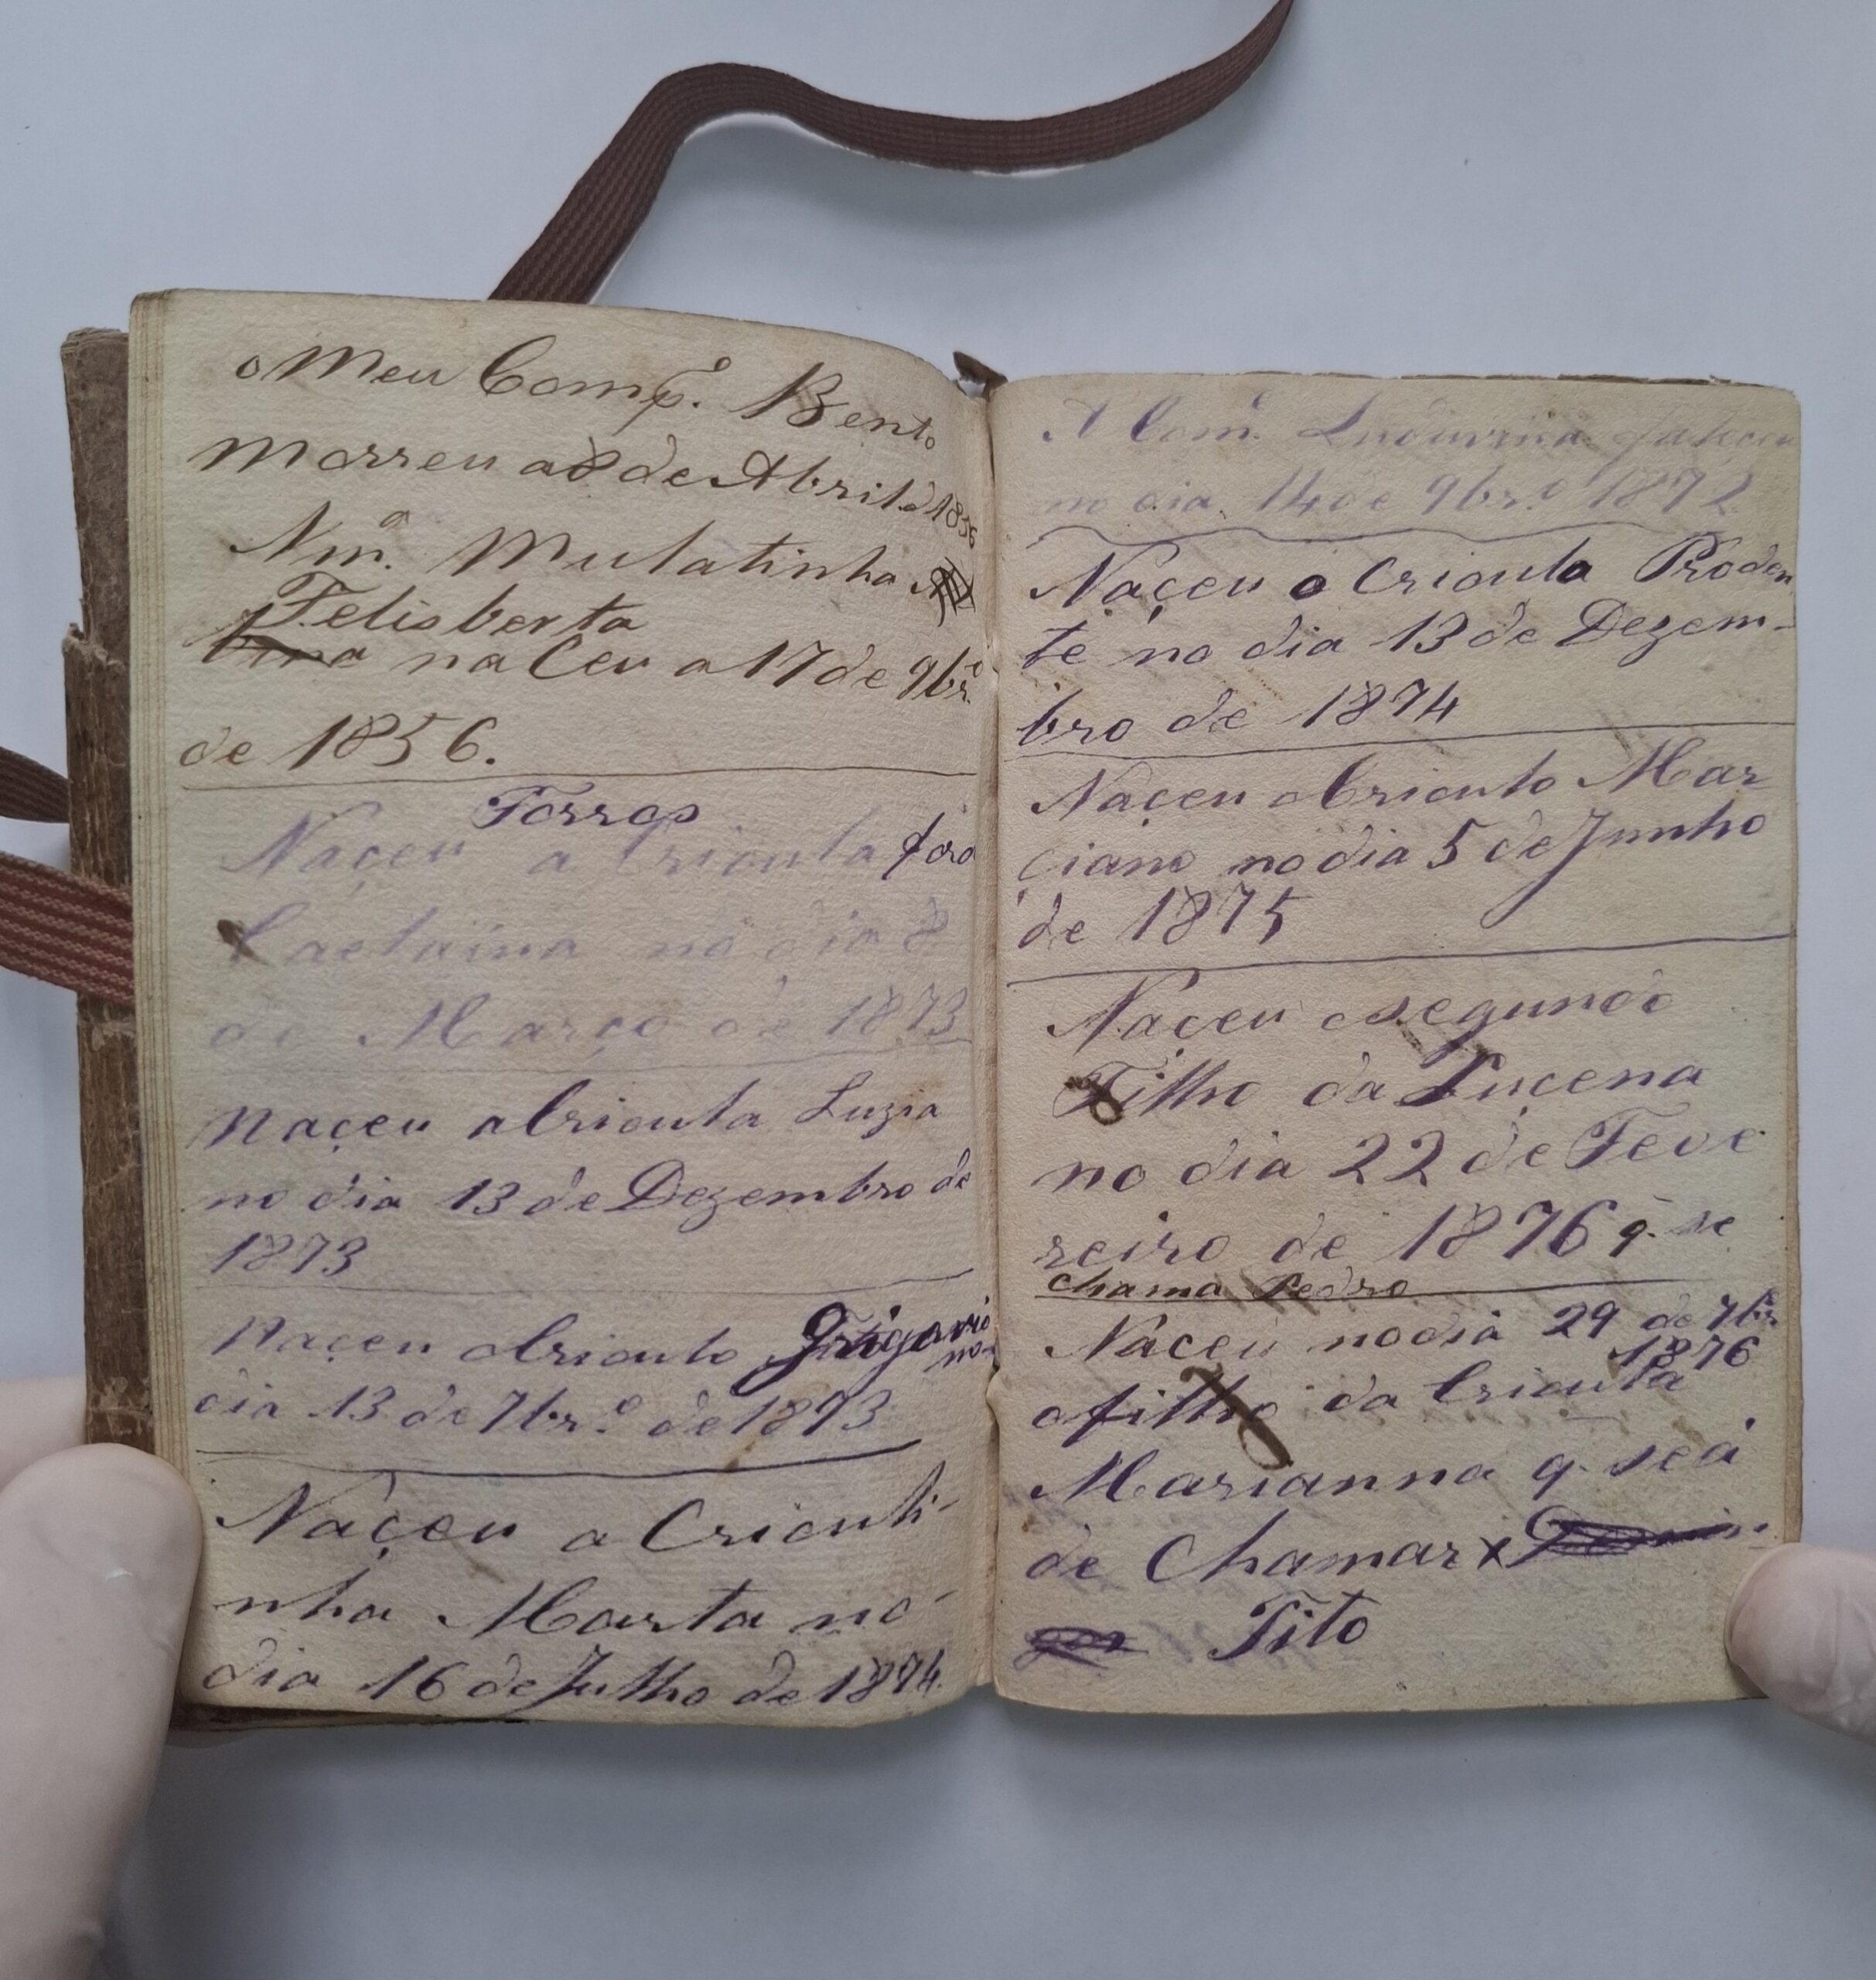 o Meu Comp.e Bento
Morreu a 8 de Abril d 1856
Nm.a Mulatinha
Felisberta
na Ceu a 17 de 9br.o
de 1856.
Forros
Naçeu a Crioula fora
Caetaina no dia 8
de Março de 1873
Naçeu a Crioula Luzia
no dia 13 de Dezembro de
1873
Naçeu o Crioulo Grigorio
no
dia 13 de 7br.o de 1873
Naçeu a Criouli-
nha Marta no
dia 16 de Julho de 1874.
A Com.e Luduvina faleceu
no dia 14 de 9br.o 1872
Naçeu o Crioulo Proden
te no dia 13 de Dezem-
bro de 1874
Naçeu o Crioulo Mar
çiano no dia 5 de Junho
de 1875
Naçeu o segundo
Filho da Luçena
no dia 22 de Feve
reiro de 1876 q. se
chama Pedro
Naceu no dia 29 de 7br.o
1876
o filho da Crioula
Marianna q. se á
de Chamar x
Tito